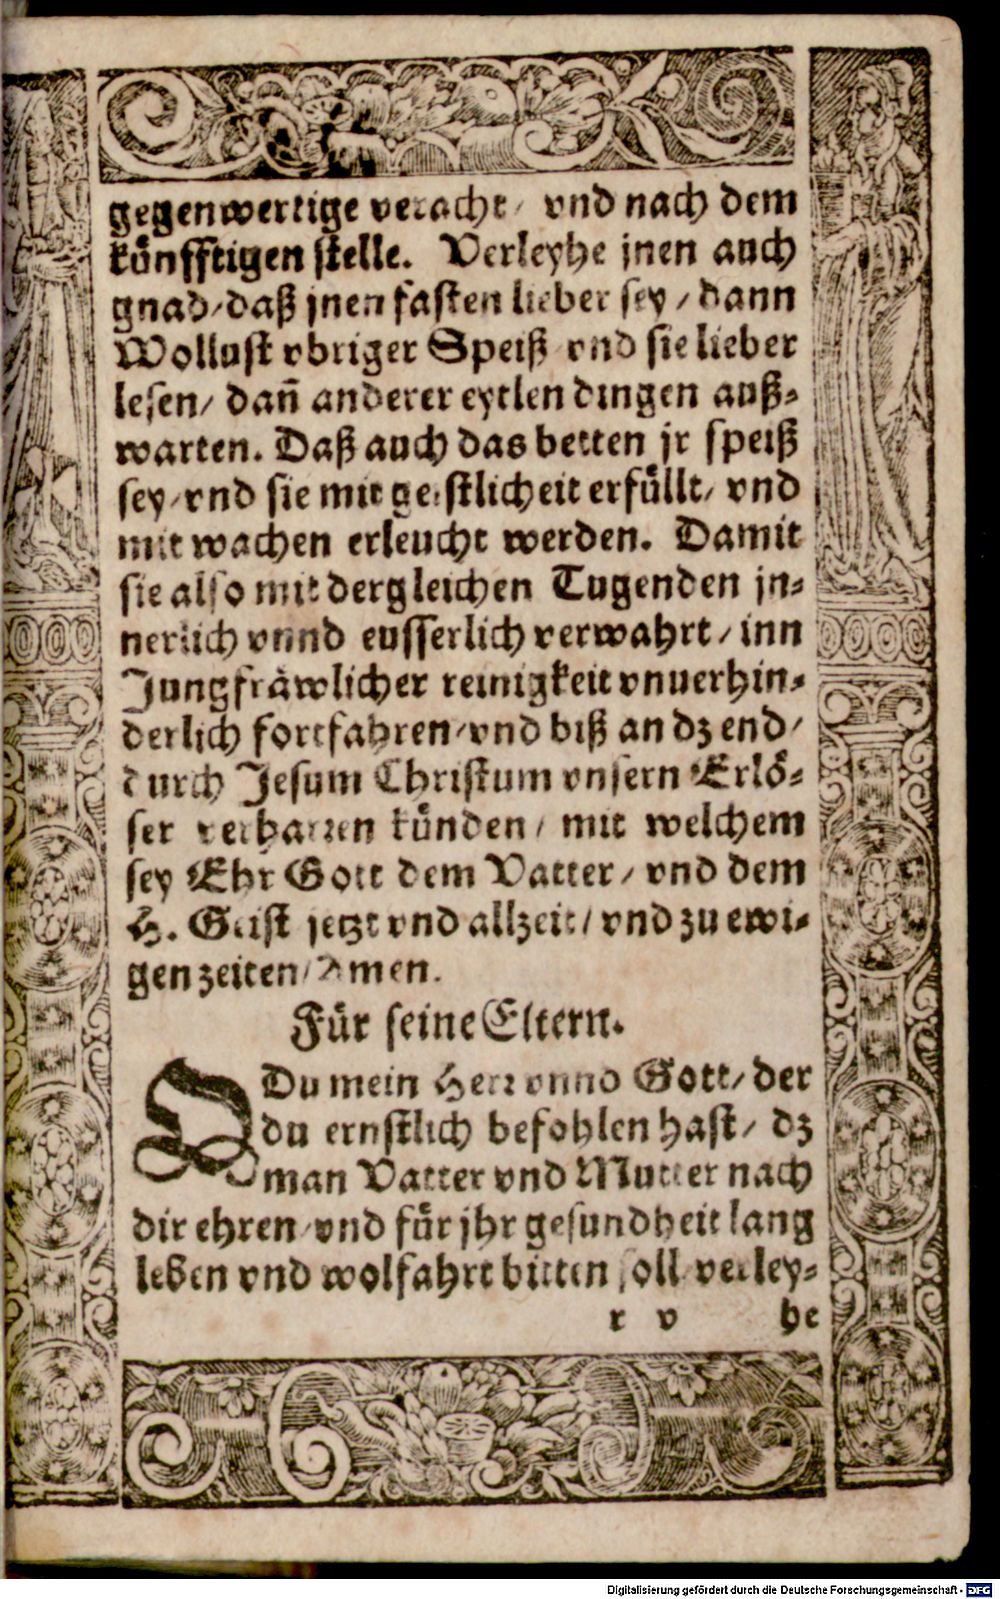 gegenwertige veracht/ vnd nach dem
künfftigen stelle. Verleyhe jnen auch
gnad/daß jnen fasten lieber sey/dann
Wollust vbriger Speiß vnd sie lieber
lesen/ dañ anderer eytlen dingen auß-
warten. Daß auch das betten jr speiß
sey/vnd sie mit geistlicheit erfüllt/ vnd
mit wachen erleucht werden. Damit
sie also mit dergleichen Tugenden in-
nerlich vnnd eusserlich verwahrt/inn
Jungfräwlicher reinigkeit vnuerhin-
derlich fortfahren/vnd biß an dz end/
durch Jesum Christum vnsern Erlö-
ser verharren künden/ mit welchem
sey Ehr Gott dem Vatter/ vnd dem
H. Geist jetzt vnd allzeit/vnd zu ewi-
gen zeiten/Amen.
Für seine Eltern.
O Du mein Herr vnnd Gott/der
du ernstlich befohlen hast/ dz
man Vatter vnd Mutter nach
dir ehren/vnd für jhr gesundheit lang
leben vnd wolfahrt bitten soll/verley-
r v he
Digitalisierung gefördert durch die Deutsche Forschungsgemeinschaft - DFG